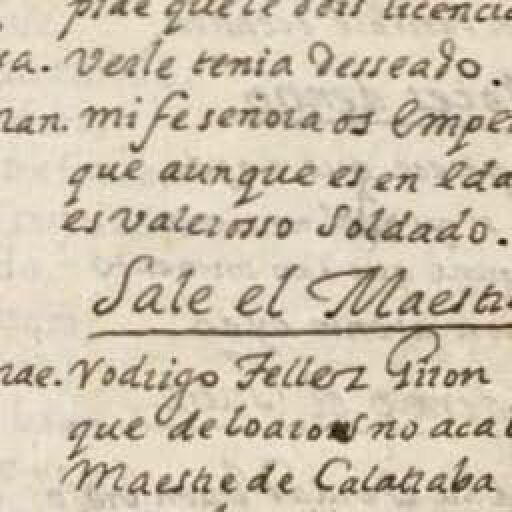 pide que le deis licencia
sa. Verle tenia desseado.
man. mi fe señora os Empe
que aunque es en eda
es valerosso Soldado.
Sale el Maestre
mae. Rodrigo Tellez Giron
que de loaros no aca
Maestre de Calatraba